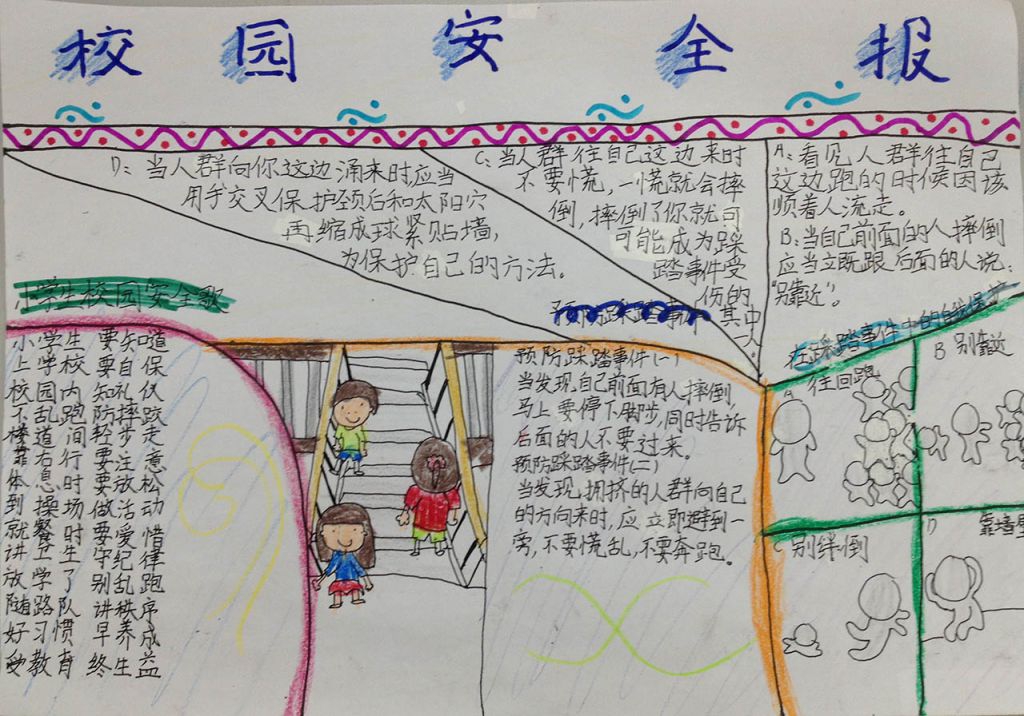 校园安全报
D：当人群向你这边涌来时,应当
用手交叉保护颈后和太阳穴
再缩成球紧贴墙,
为保护自己的方法。
C：当人群往自己这边来时
不要慌,一慌就会摔
倒,摔倒了你就可
可能成为踩
踏事件受
伤的
其中
一人。
A：看见人群往自己
这边跑的时候因该
顺着人流走。
B：当自己前面的人摔倒
应当立既跟后面的人说：
“别靠近”。
小学生校园安全歌
小学生 要知道
上学校 要自保
校园内 知礼仪
不乱跑 防摔跤
楼道间 轻步走
靠右行 要注意
体息时 要放松
到操场 做活动
就餐时 要爱惜
讲卫生 守纪律
放学了 别乱跑
随路队 讲秩序
好习惯 早养成
受教育 终生益
预防踩踏事件
预防踩踏事件(一)
当发现自己前面有人摔倒,
马上要停下脚步,同时告诉
后面的人不要过来。
预防踩踏事件(二)
当发现拥挤的人群向自己
的方向来时,应立即避到一
旁,不要慌乱,不要奔跑。
在踩踏事件中的自我保护
A 往回跑
B 别靠近
C 别绊倒
D 靠墙